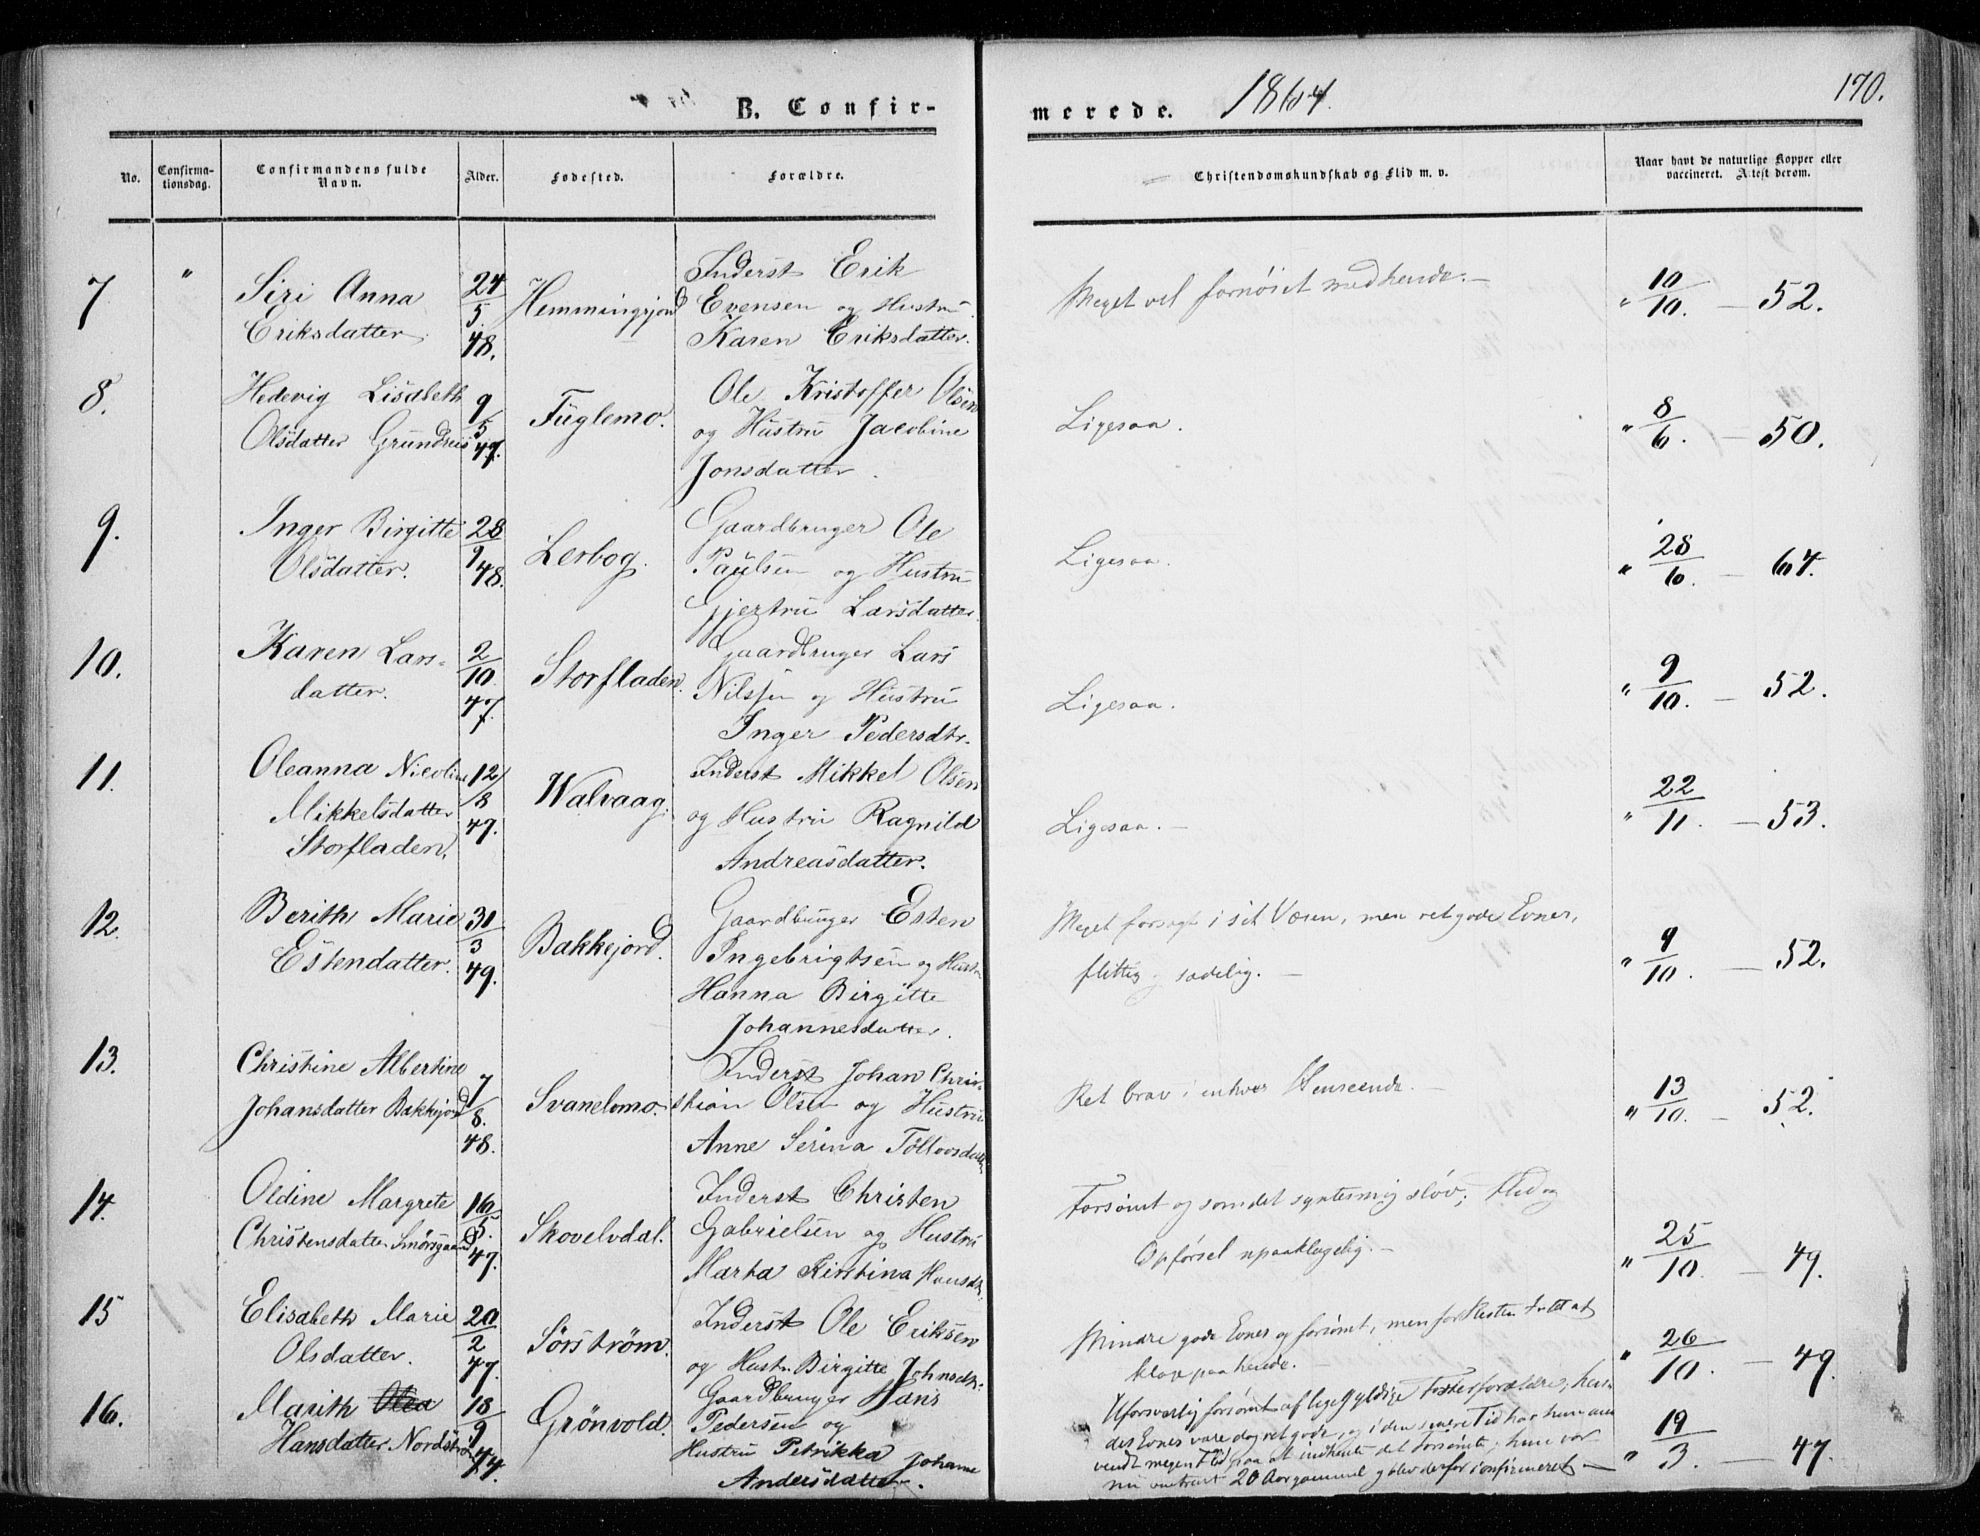 B. Confir-
merede. 1864.
170.
No.
Confirma-
tionsdag.
Confirmandens fulde
Navn.
Alder.
Fødested.
Forældre.
Christendomskundskab og Flid m. v.
Naar havt de naturlige Kopper eller
vaccineret. Attest derom.
7 " Siri Anna
Eriksdatter.
24/5 48.
Hemmingsjord
Inderst Erik
Evensen og Hustru
Karen Eriksdatter.
Meget vel fornøiet med hende. —
" 10/10. — 52.
8. Hedevig Lisabeth
Olsdatter Grundnes
9/5 47.
Fuglemo.
Ole Kristoffer Olsen
og Hustru Jacobine
Jonsdatter.
Ligesaa.
" 8/6. — 50.
9. Inger Birgitte
Olsdatter.
28/9 48.
Lerbog.
Gaardbruger Ole
Paulsen og Hustru
Gjertru Larsdatter
Ligesaa.
" 28/6. — 64.
10. Karen Lars-
datter.
2/10 47.
Storfladen.
Gaardbruger Lars
Nilssen og Hustru
Inger Pedersdtr.
Ligesaa.
" 9/10. — 52.
11. Oleanna Nicoline
Mikkelsdatter
Storfladen.
12/8 47.
Walvaag.
Inderst Mikkel Olsen
og Hustru Ragnild
Andreasdatter.
Ligesaa. —
" 22/11. — 53.
12. Berith Marie
Estendatter.
31/3 49.
Bakkejord.
Gaardbruger Esten
Ingebrigtsen og Hustru
Hanna Birgitte
Johannesdatter.
Meget forsagt i sit Væsen, men ret gode Evner,
flittig og sædelig. —
" 9/10. — 52.
13. Christine Albertine
Johansdatter Bakkejord
7/8. 48.
Svanelvmo.
Inderst Johan Chris-
tian Olsen og Hustru
Anne Serina Tollovsdatter
Ret brav i enhver Henseende. —
" 13/10. — 52.
14. Oldine Margrete
Christensdatter Smørsgaard
16/5. 47.
Skovelvdal.
Inderst Christen
Gabrielsen og Hustru
Marta Kirstina Hansdtr.
Forsømt og som det syntes mig sløv; Flid og
Opførsel upaaklagelig. —
" 25/10. — 49.
15 Elisabeth Marie
Olsdatter.
20/2 47.
Sørstrøm.
Inderst Ole Eriksen
og Hustr. Birgitte Johnsdtr.
Mindre gode Evner og forsømt, men for Resten Intet at
klage paa hende.
" 26/10. — 49.
16. Marith Olea
Hansdatter Nordstrøm
18/9 44.
Grönvold.
Gaardbruger Hans
Pedersen og
Hustru Petrikka Johanne
Andersdatter.
Uforsvarlig forsømt af ligegyldige Fosterforældre; hen-
des Evner vare dog ret gode, og i den senere Tid har hun an-
vendt megen Flid paa at indhente det Forsømte; hun var
nu omtrent 20 Aar gammel og blev derfor confirmeret —
" 19/3. — 47.